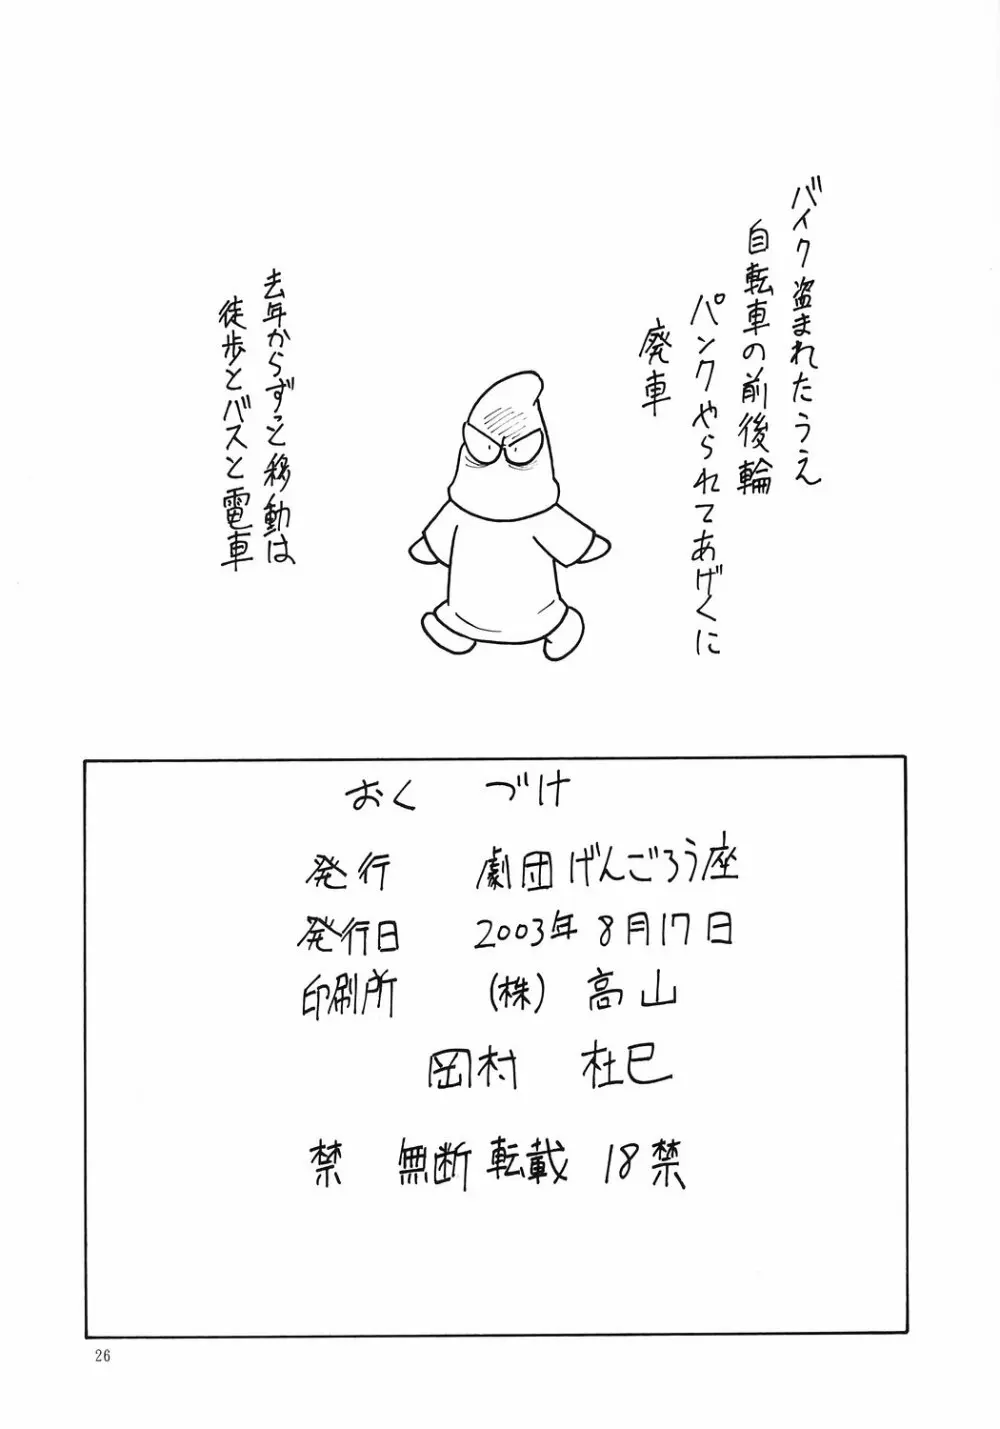 バイク盗まれたうえ
自転車の前後輪
パンクやられてあげくに
廃車
去年からずっと移動は
徒歩とバスと電車
おくづけ
発行 劇団げんごろう座
発行日 2003年8月17日
印刷所 (株)高山
岡村 杜巳
禁 無断転載 18禁
26